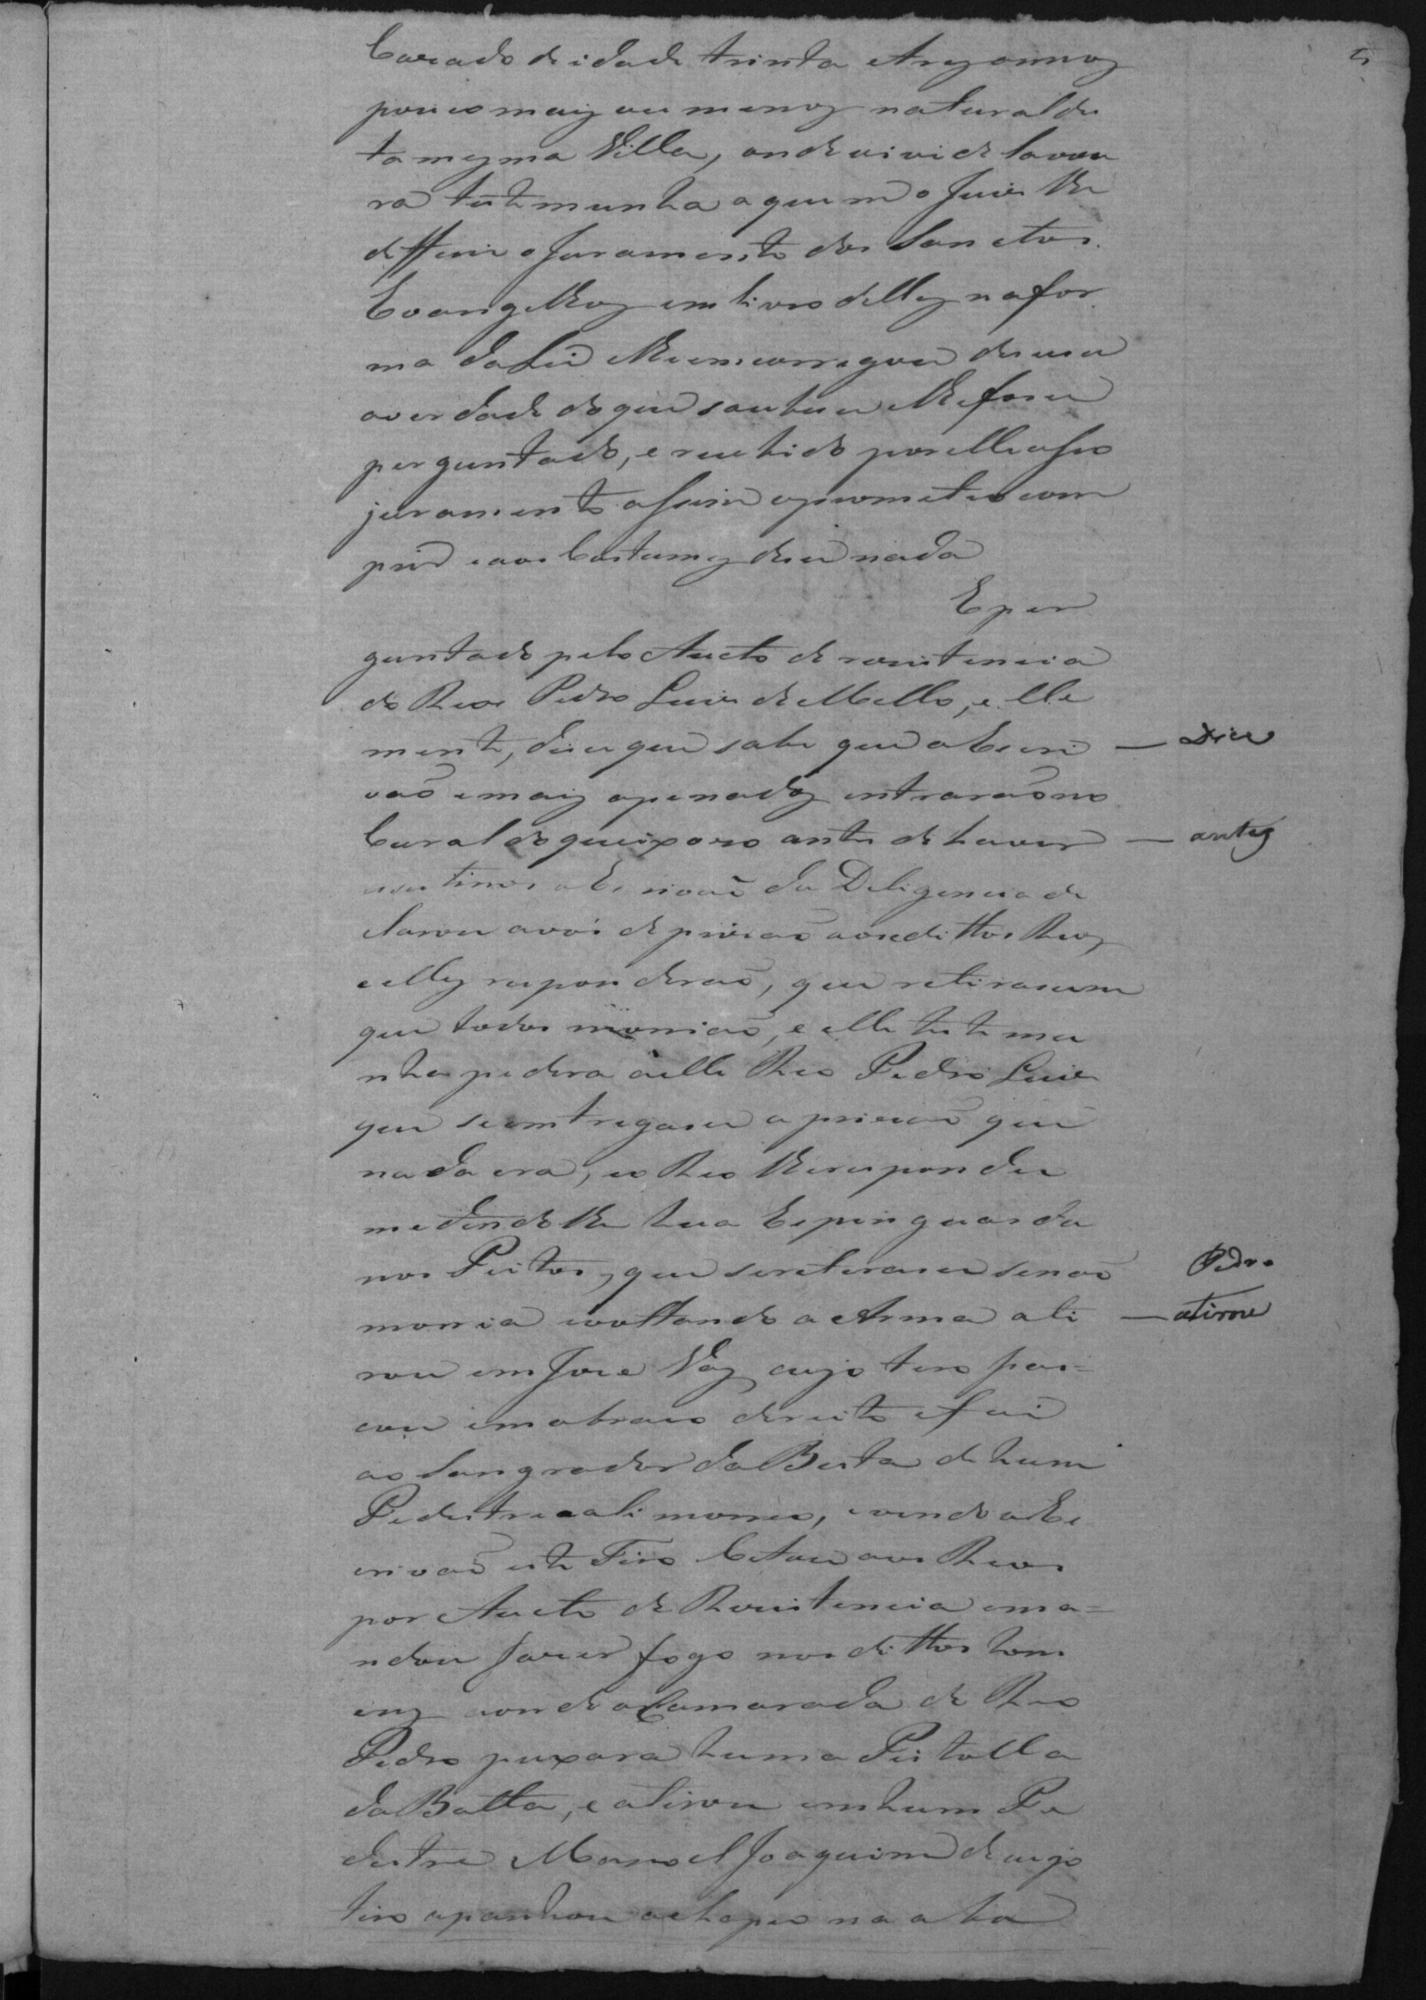 5
Cazado de idade trinta e trez annoz
pouco maiz ou menoz natural des
ta mezma Villa, onde vive de lavou
ra testemunha a quem o Juiz lhe
defferio o Juramento dos Sanctos
Evangelhoz em livro dellez na for
ma da Lei e lhe emcarregou dicece
a verdade do que soubece e lhe foce
perguntado, e recebido por elle o ço
juramento assim o prometeo com
prir e aos Costumez dice nada
E per
guntado pelo Aucto de rezistencia
do Reos Pedro Luis de Mello, elle
mente, dice que sabe que o Escri — Dice
vão e maiz apenadoz entrarão no
Cural do queixozo antes de haver — antez
o Escrivão da Deligencia de
clarou a voz de prizão aos dittos Reoz
e ellez responderão, que retiracem
que todos morrião, e elle testemu
nha pedira a elle Reo Pedro Luis
que se entregace a prizão que
nada era, e o Reo lhe respondeu
metendo lhe hua Espinguarda
nos Peitos, que se retirace senão Pedro
morria e voltando a Arma ati — atirou
rou em Joze Vaz cujo tiro pas=
cou em o braco direito e foi
ao Sangrador da Besta de hum
Pedestre e ali morreo, e vendo o Es
crivão este Tiro Citou aos Reos
por Aucto de Rezistencia e ma=
ndou fazer fogo nos dittos hom
enz aonde o Camarada do Reo
Pedro puxara huma Pistolla
da Botta, e atirou em hum Pe
destre Manoel Joaquim de cujo
tiro apanhou o chapeo na aba